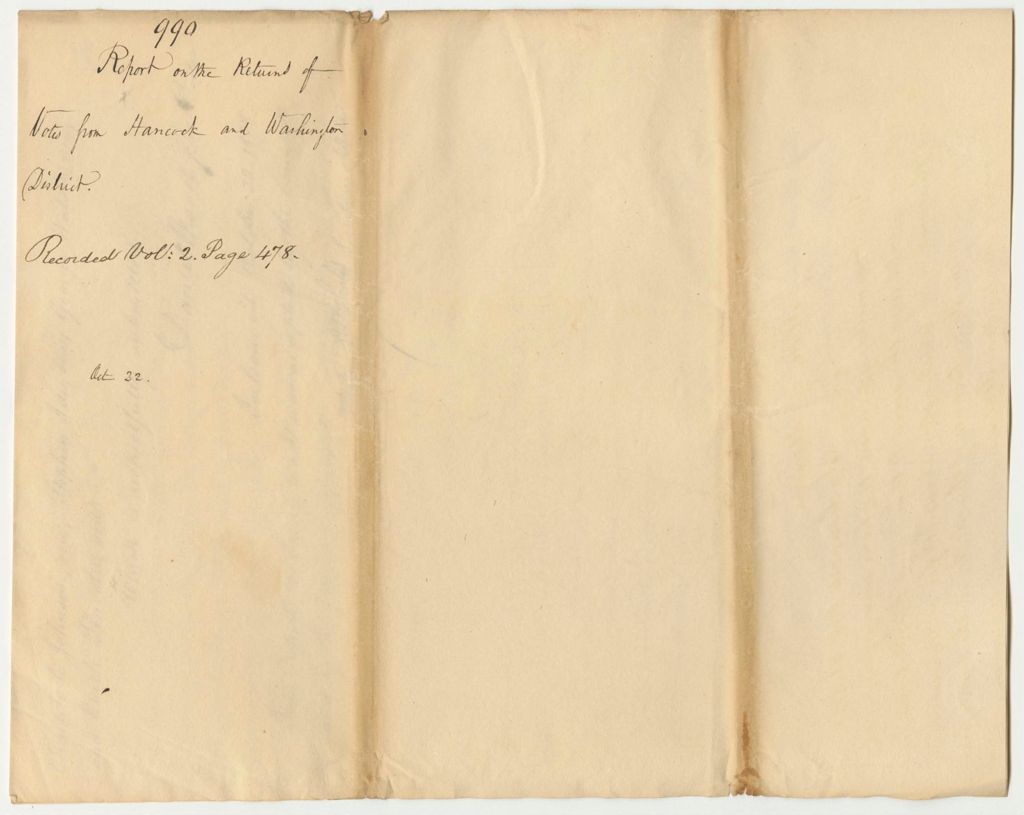 990
Report on the Returns of
Votes from Hancock and Washington
District.
Recorded Vol: 2. Page 478.
Oct 22.